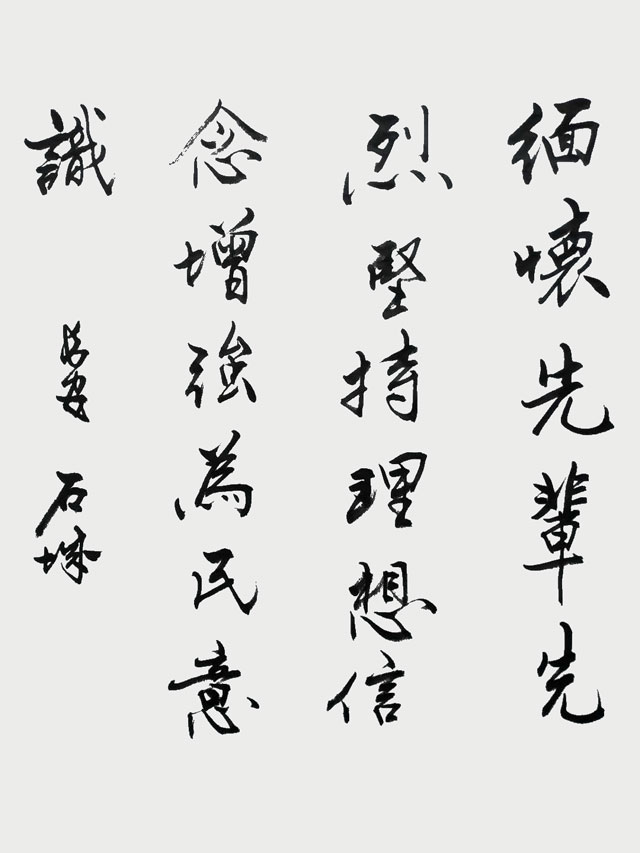 緬懷先輩先
烈堅持理想信
念增強為民意
識
長安 石城